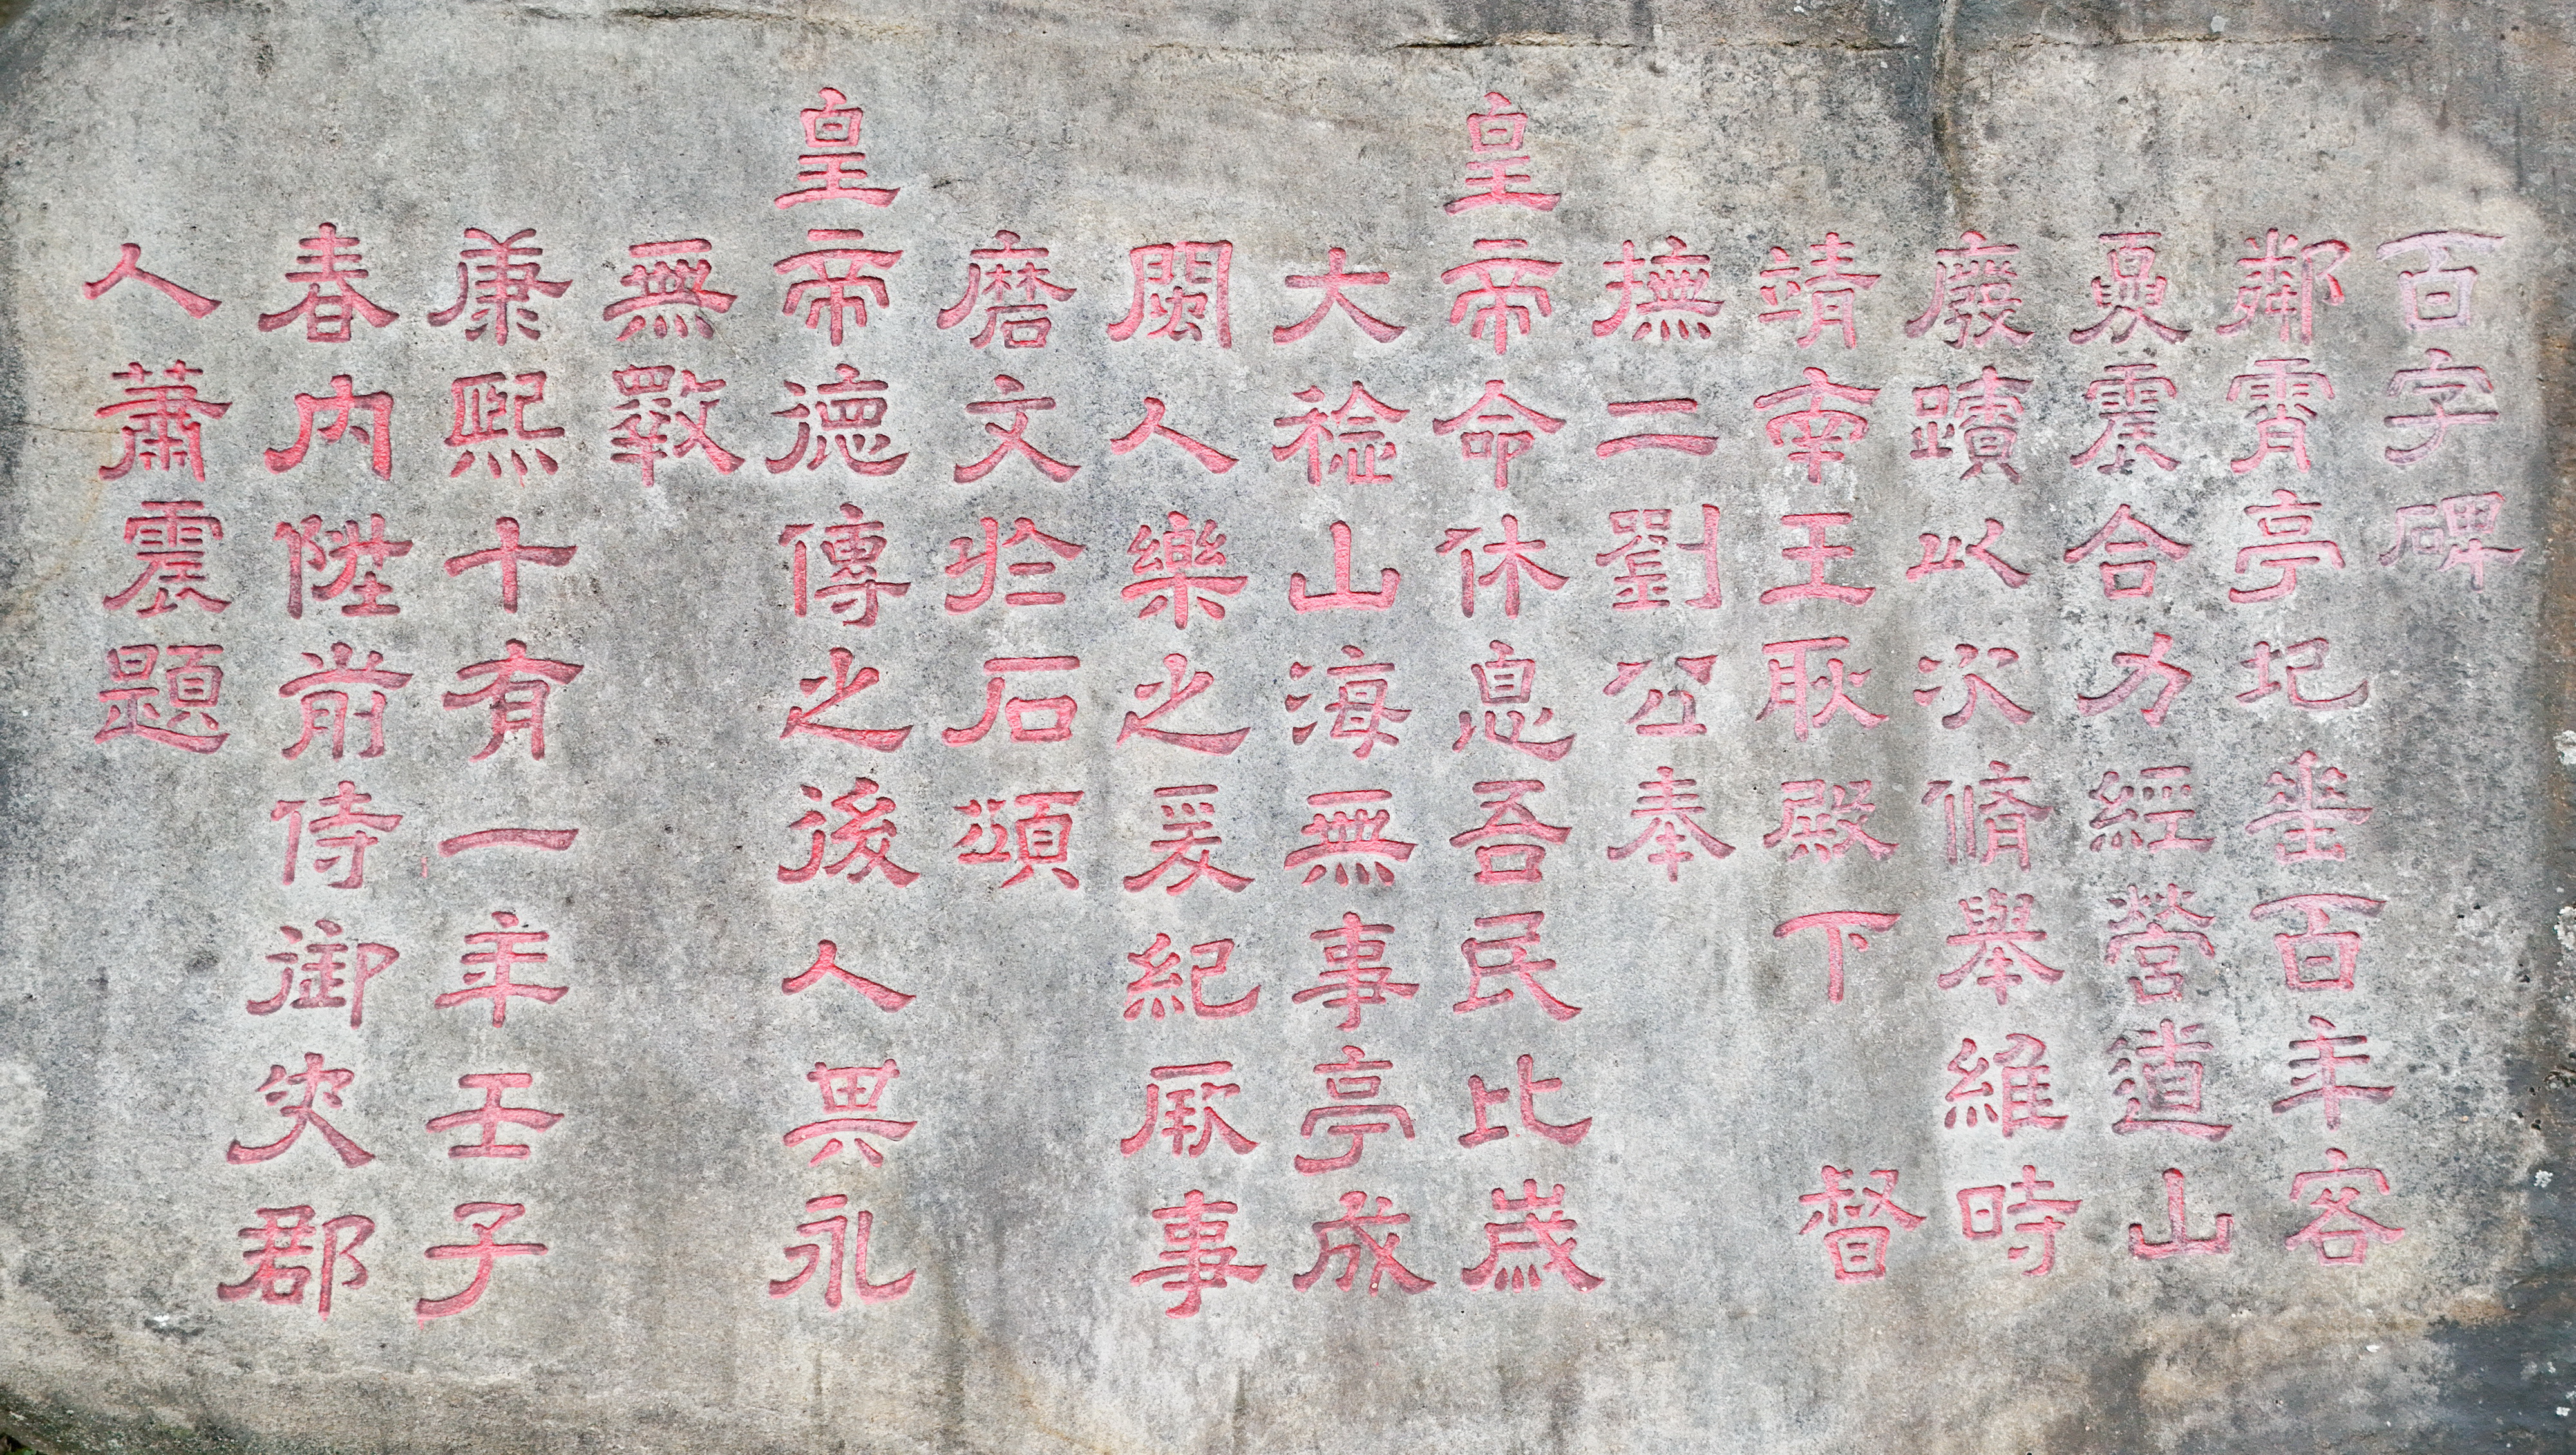 百字碑
鄰霄亭圮垂百年客
夏震合力經營道山
廢蹟以次脩舉維時
靖南王耿殿下督
撫二劉公奉
皇帝命休息吾民比歲
大稔山海無事亭成
閩人樂之爰紀厥事
磨文於石頌
皇帝德傳之後人異永
無斁
康熙十有一年壬子
春內陞前侍御史郡
人蕭震題